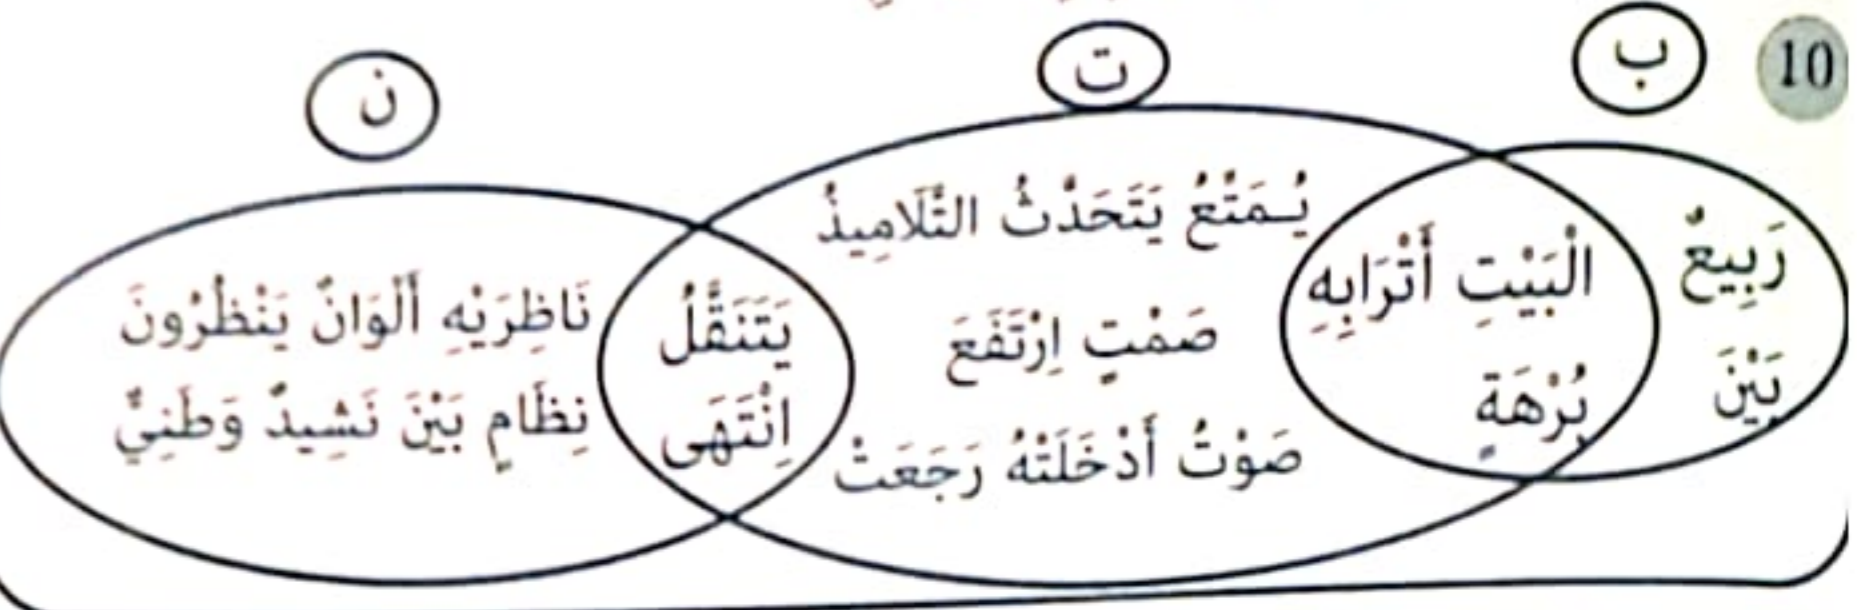 10
ب
ت
ن
رَبِيعٌ
بَيْنَ
الْبَيْتِ أَتْرَابِهِ
بُرْهَةٍ
يُـمَتِّعُ يَتَحَدَّثُ التَّلَامِيذُ
صَمْتٍ اِرْتَفَعَ
صَوْتُ أَدْخَلَتْهُ رَجَعَتْ
يَتَنَقَّلُ
اِنْتَهَى
نَاظِرَيْهِ أَلْوَانٌ يَنْظُرُونَ
نِظَامٍ بَيْنَ نَشِيدٌ وَطَنِيٌّ